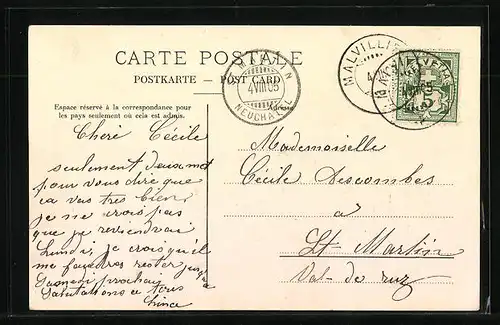 CARTE POSTALE
POSTKARTE – POST CARD
Espace réservé à la correspondance pour
les pays seulement où cela est admis.
4 VIII 05
NEUCHATEL
MALVILLIE
HELVETIA
Cheré Cécile
seulement deux mot
pour vous dire que
ca vas très bien,
je ne crois pas
que je reviendrai
Lundi, je crois qu'il
me faudra rester jusqu
Samedi prochain
Salutations a tous
Mademoiselle
Cécile Descombes
à
St. Martin
Val-de-ruz